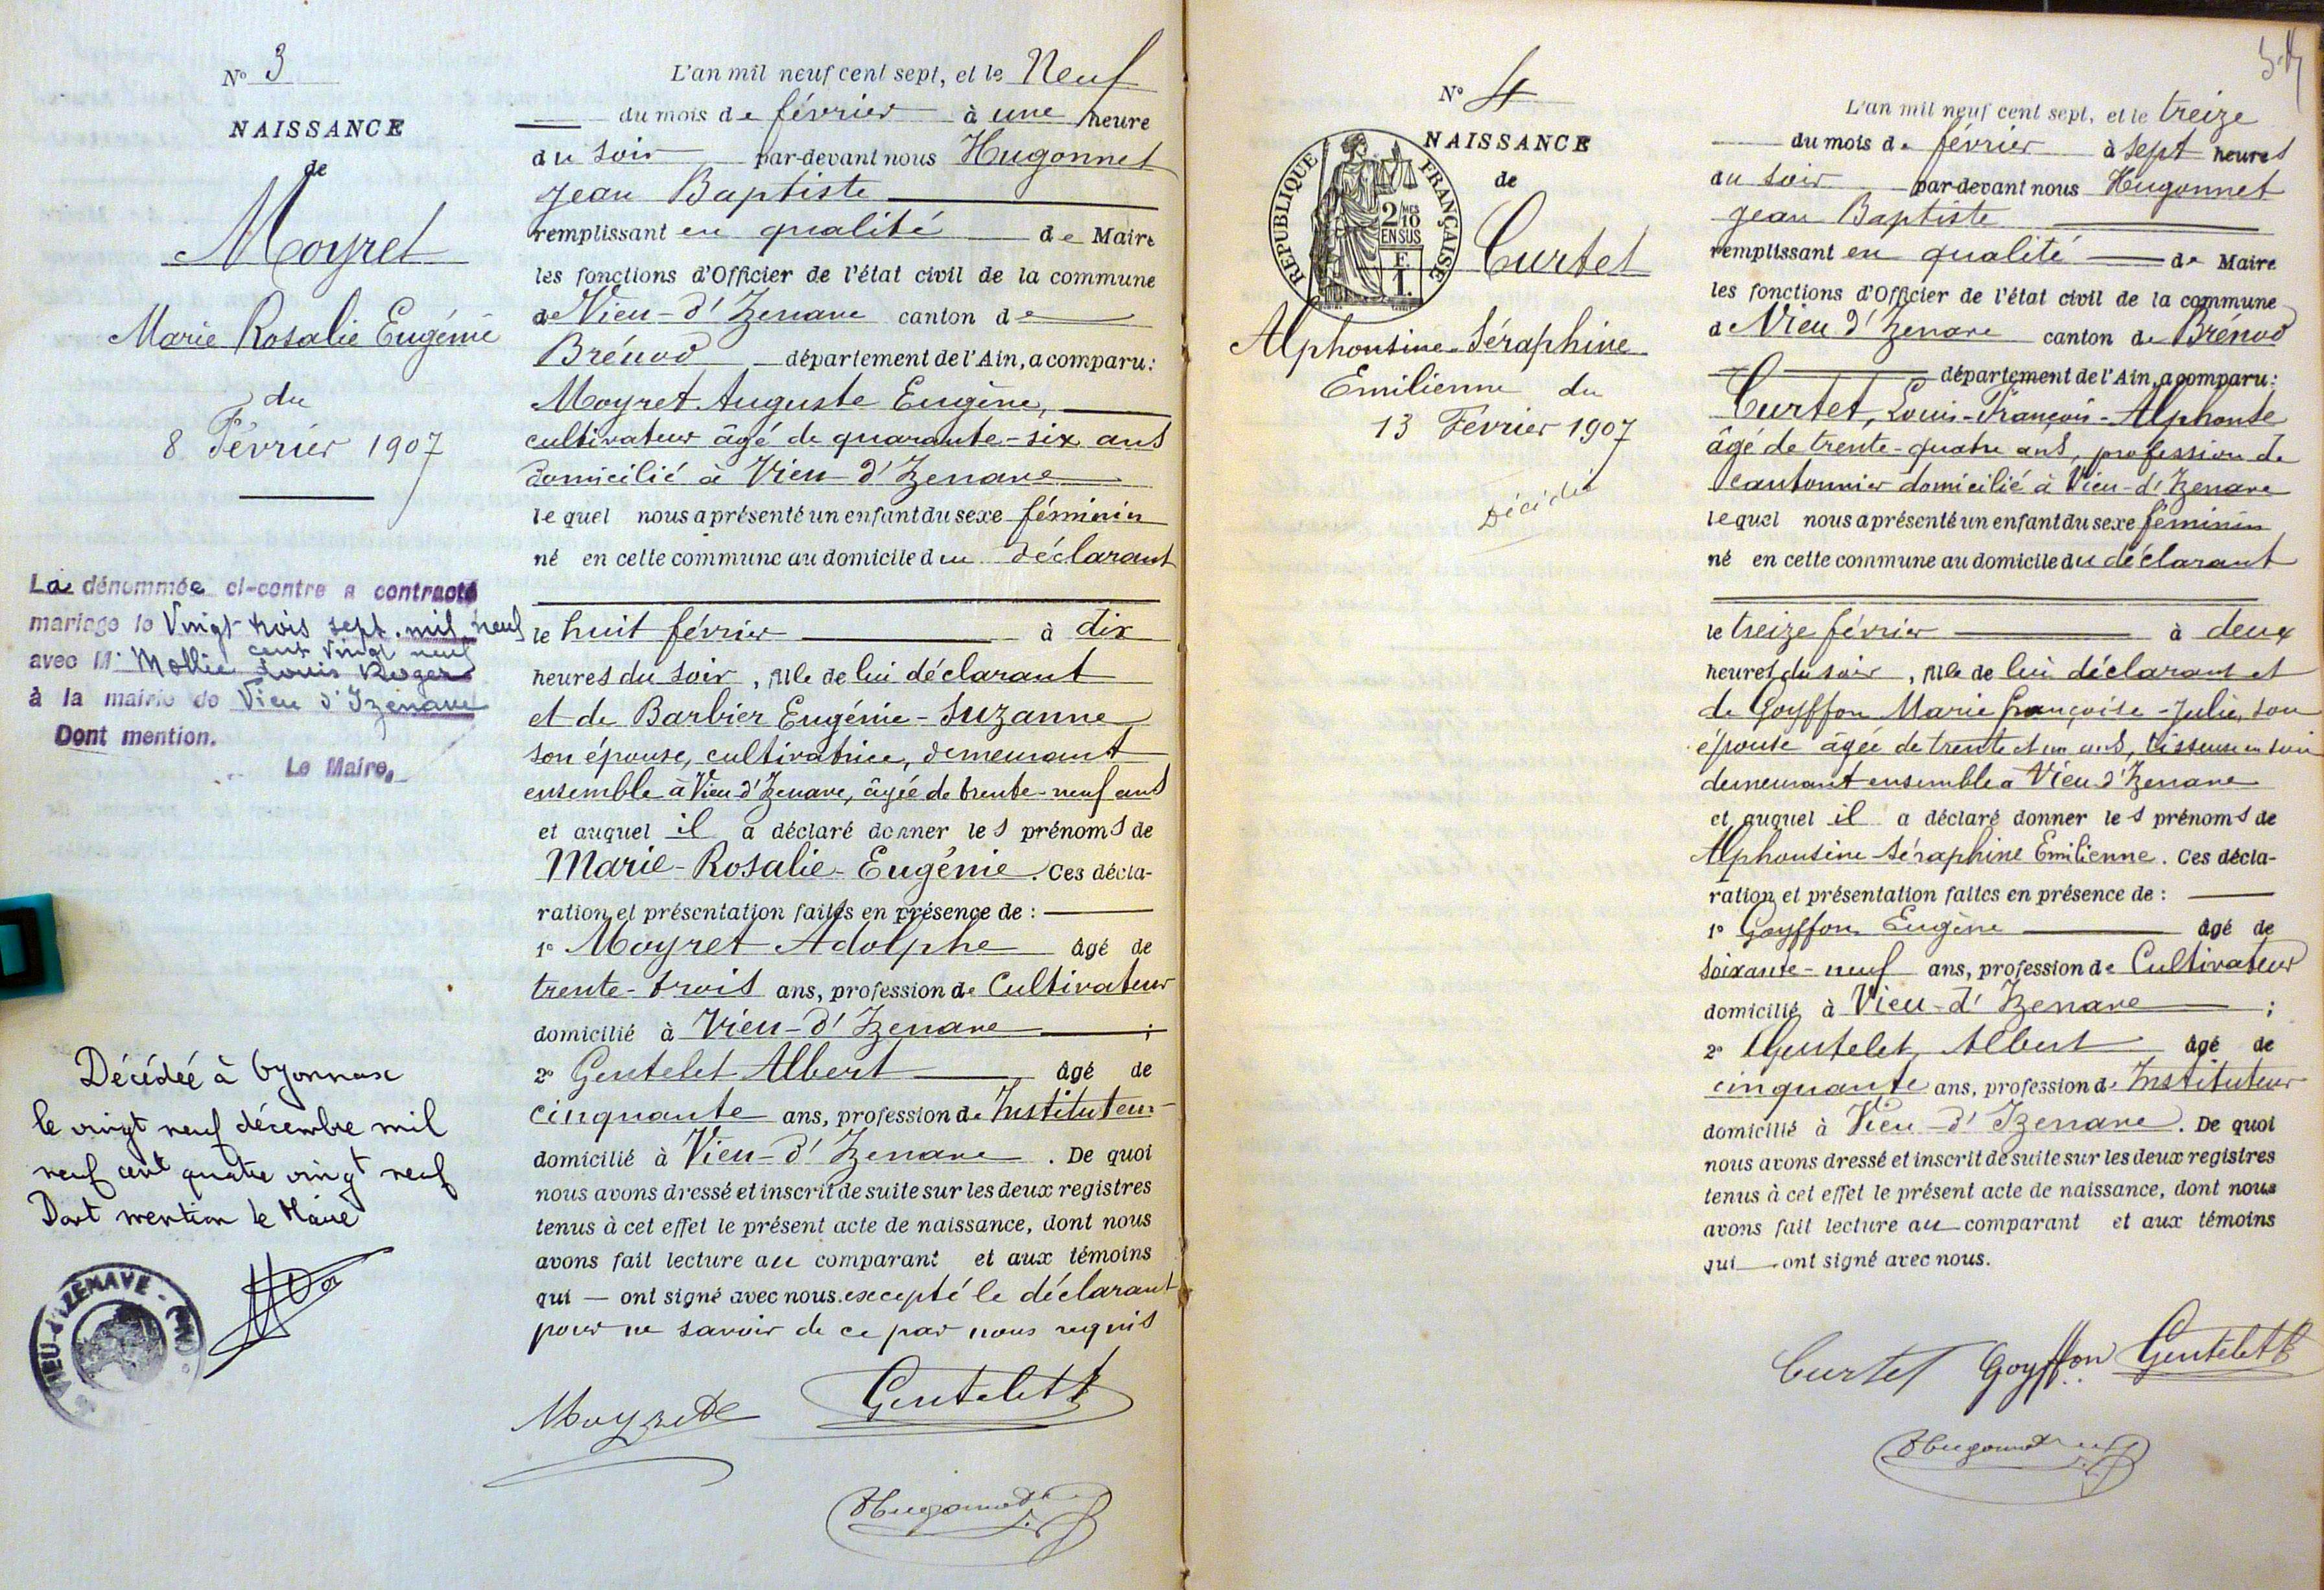 N° 3
NAISSANCE
de
Moyret
Marie Rosalie Eugénie
du
8 Février 1907
La dénommée ci-contre a contracté
mariage le Vingt-trois sept. mil neuf
cent vingt neuf
avec Mr Mollie Louis Roger
à la mairie de Vieu d'Izenave
Dont mention.
Le Maire,
Décédée à Oyonnax
le vingt neuf décembre mil
neuf cent quatre vingt neuf
Dont mention le Maire
VIEU-d'IZENAVE - (Ain)
L'an mil neuf cent sept, et le Neuf
du mois de février à une heure
du soir par-devant nous Hugonnet
Jean Baptiste
remplissant en qualité de Maire
les fonctions d'Officier de l'état civil de la commune
de Vieu-d'Izenave canton de
Brénod département de l'Ain, a comparu:
Moyret Auguste Eugène,
cultivateur âgé de quarante-six ans
domicilié à Vieu d'Izenave
lequel nous a présenté un enfant du sexe féminin
né en cette commune au domicile du déclarant
le huit février à dix
heures du soir, fille de lui déclarant
et de Barbier Eugénie-Suzanne
son épouse, cultivatrice, demeurant
ensemble à Vieu d'Izenave, âgée de trente-neuf ans
et auquel il a déclaré donner les prénoms de
Marie-Rosalie-Eugénie. Ces décla-
ration et présentation faites en présence de :
1° Moyret Adolphe âgé de
trente-trois ans, profession de Cultivateur
domicilié à Vieu-d'Izenave ;
2° Gentelet Albert âgé de
cinquante ans, profession de Instituteur
domicilié à Vieu-d'Izenave. De quoi
nous avons dressé et inscrit de suite sur les deux registres
tenus à cet effet le présent acte de naissance, dont nous
avons fait lecture au comparant et aux témoins
qui — ont signé avec nous. excepté le déclarant
pour ne savoir de ce par nous requis
Moyret Gentelet
Hugonnet
N° 4
NAISSANCE
de
REPUBLIQUE FRANÇAISE
2/10 MES
EN SUS
Curtet
Alphonsine-Séraphine
Emilienne du
13 Février 1907
L'an mil neuf cent sept, et le treize
du mois de février à sept heures
du soir par-devant nous Hugonnet
Jean Baptiste
remplissant en qualité de Maire
les fonctions d'Officier de l'état civil de la commune
de Vieu d'Izenave canton de Brénod
département de l'Ain, a comparu:
Curtet, Louis-François-Alphonse
âgé de trente-quatre ans, profession de
cantonnier domicilié à Vieu-d'Izenave
lequel nous a présenté un enfant du sexe féminin
né en cette commune au domicile du déclarant
le treize février à deux
heures du soir, fille de lui déclarant et
de Goyffon Marie françoise-Julie, son
épouse âgée de trente et un ans, tisseuse en soie
demeurant ensemble à Vieu d'Izenave
et auquel il a déclaré donner les prénoms de
Alphonsine Séraphine Emilienne. Ces décla-
ration et présentation faites en présence de :
1° Goyffon Eugène âgé de
soixante-neuf ans, profession de Cultivateur
domicilié à Vieu-d'Izenave ;
2° Gentelet Albert âgé de
cinquante ans, profession de Instituteur
domicilié à Vieu-d'Izenave. De quoi
nous avons dressé et inscrit de suite sur les deux registres
tenus à cet effet le présent acte de naissance, dont nous
avons fait lecture au comparant et aux témoins
qui — ont signé avec nous.
Curtet Goyffon Gentelet
Hugonnet